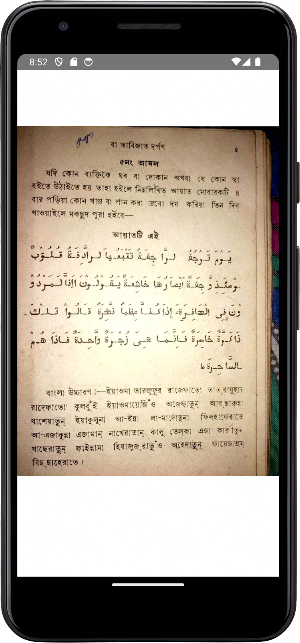 8:52
বা তাবিজাত দর্পণ ৫
৫নং আমল
যদি কোন ব্যক্তিকে ঘর বা দোকান অথবা যে কোন স্থা
হইতে উঠাইতে হয় তাহা হইলে নিম্নলিখিত আয়াত মোবারকটি ৪
বার পড়িয়া কোন খাদ্য বা পান করা দ্রব্যে দম করিয়া তিন দিন
খাওয়াইলে মকছুদ পুরা হইবে—
আয়াতটি এই
يَوْمَ تَرْجُفُ الرَّاجِفَةُ تَتْبَعُهَا الرَّادِفَةُ قُلُوْبٌ
يَّوْمَئِذٍ وَّاجِفَةٌ اَبْصَارُهَا خَاشِعَةٌ يَقُوْلُوْنَ ءَاِنَّا لَمَرْدُوْدُ
وْنَ فِى الْحَافِرَةِ ءَاِذَا كُنَّا عِظَامًا نَّخِرَةً قَالُوْا تِلْكَ
اِذًا كَرَّةٌ خَاسِرَةٌ فَاِنَّمَا هِىَ زَجْرَةٌ وَّاحِدَةٌ فَاِذَا هُمْ
بِالسَّاهِرَةِ ط
বাংলা উচ্চারণ :—ইয়াওমা তারজুফুর রাজেফাতো তাত্‌বায়ুহার
রাদেফাতো কুলুবুঁই ইয়াওমায়েজিঁও ওয়াজেফাতুন আবছারুহা
খাশেয়াতুন ইয়াকুলুনা আ-ইন্না লা-মার্দুদুনা ফিলহাফেরাতে
আ-এজাকুন্না এজামান্ নাখেরাতান্ কালু তেলকা এজা কাররাতুন
খাছেরাতুন্ ফাইন্নামা হিয়াজাজ্‌রাতুঁও ওয়াহেদাতুন্ ফায়েজাহুম্
বিছ্‌ছাহেরাতে।